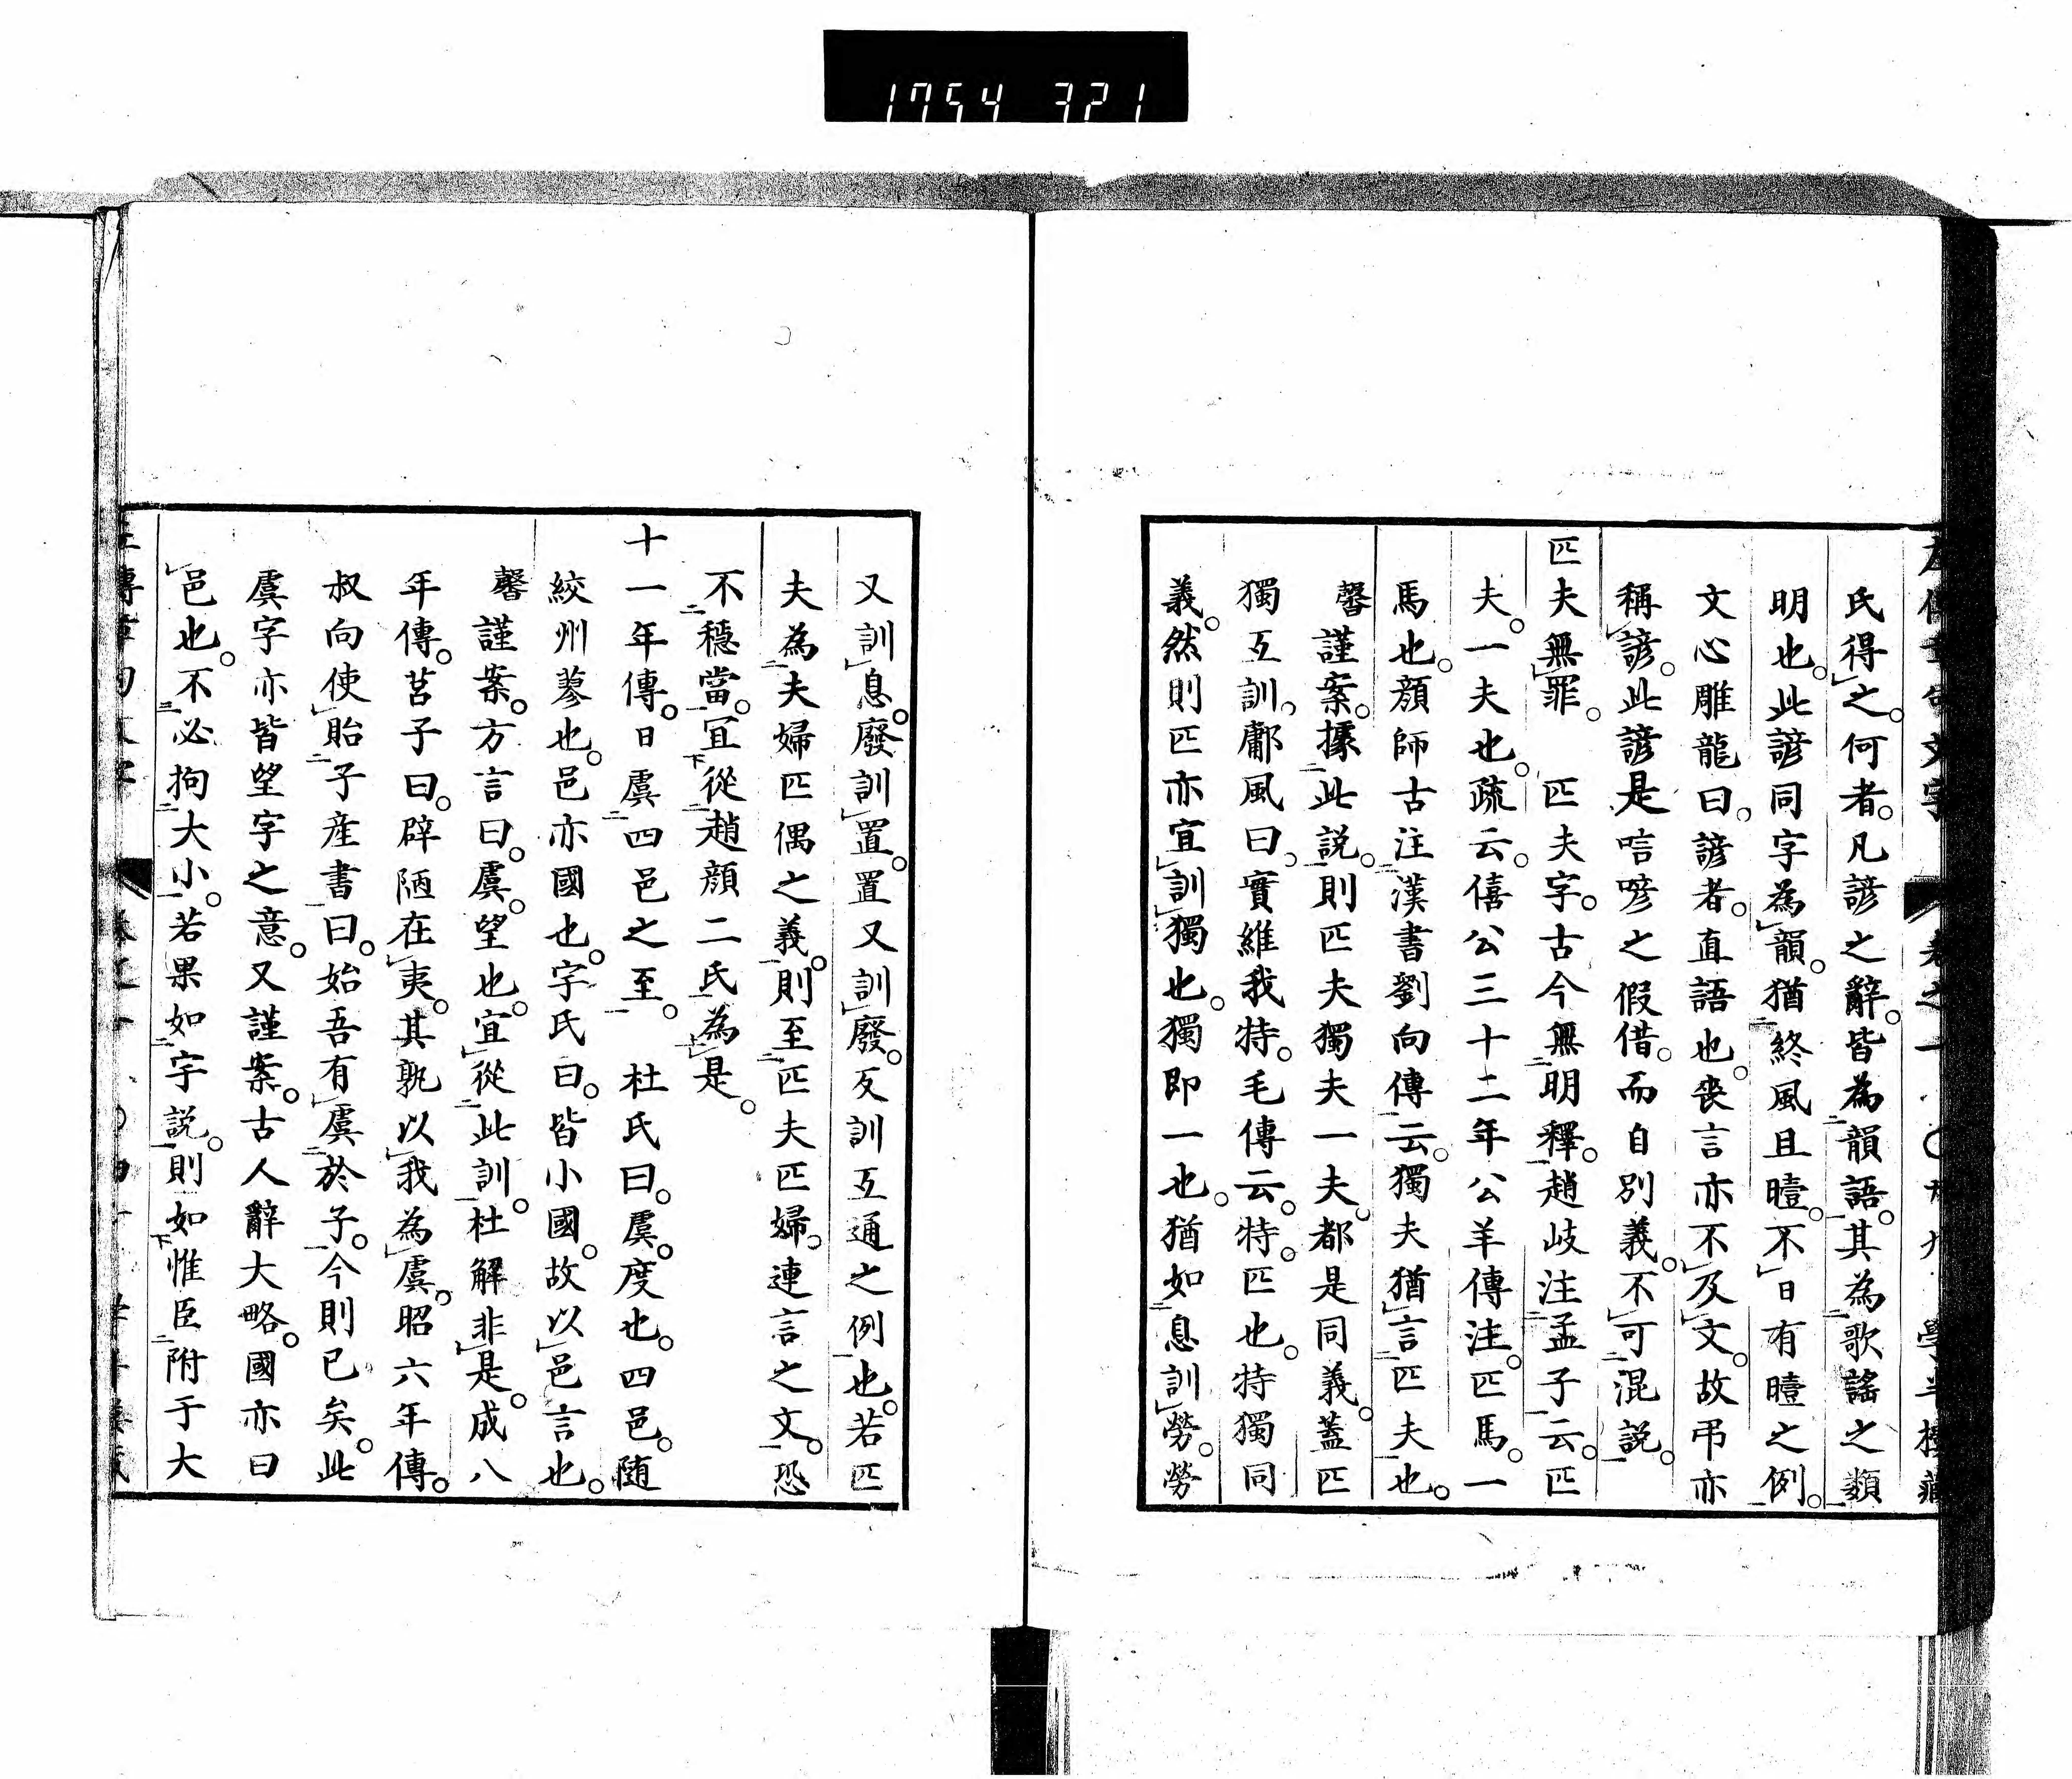 1754 321
氏得之。何者。凡諺之辭。皆為韻語。其為歌謠之類
明也。此諺同字為韻。猶終風且曀。不日有曀之例。
文心雕龍曰。諺者。直語也。喪言亦不及文。故弔亦
稱諺。此諺是唁喭之假借。而自別義。不可混説。
匹夫無罪。 匹夫字。古今無明釋。趙岐注孟子云。匹
夫。一夫也。疏云。僖公三十二年公羊傳注。匹馬。一
馬也。顏師古注漢書劉向傳云。獨夫猶言匹夫也。
馨謹案。據此説。則匹夫獨夫一夫。都是同義。蓋匹
獨互訓。鄘風曰。實維我特。毛傳云。特。匹也。特獨同
義。然則匹亦宜訓獨也。獨即一也。猶如息訓勞。勞
又訓息。廢訓置。置又訓廢。反訓互通之例也。若匹
夫為夫婦匹偶之義。則至匹夫匹婦。連言之文。恐
不穩當。宜從趙顏二氏為是。
十一年傳。日虞四邑之至。 杜氏曰。虞。度也。四邑。随
絞州蓼也。邑亦國也。字氏曰。皆小國。故以邑言也。
馨謹案。方言曰。虞。望也。宜從此訓。杜解非是。成八
年傳。莒子曰。辟陋在夷。其孰以我為虞。昭六年傳。
叔向使貽子産書曰。始吾有虞於子。今則已矣。此
虞字亦皆望字之意。又謹案。古人辭大略。國亦曰
邑也。不必拘大小。若果如字説。則如惟臣附于大